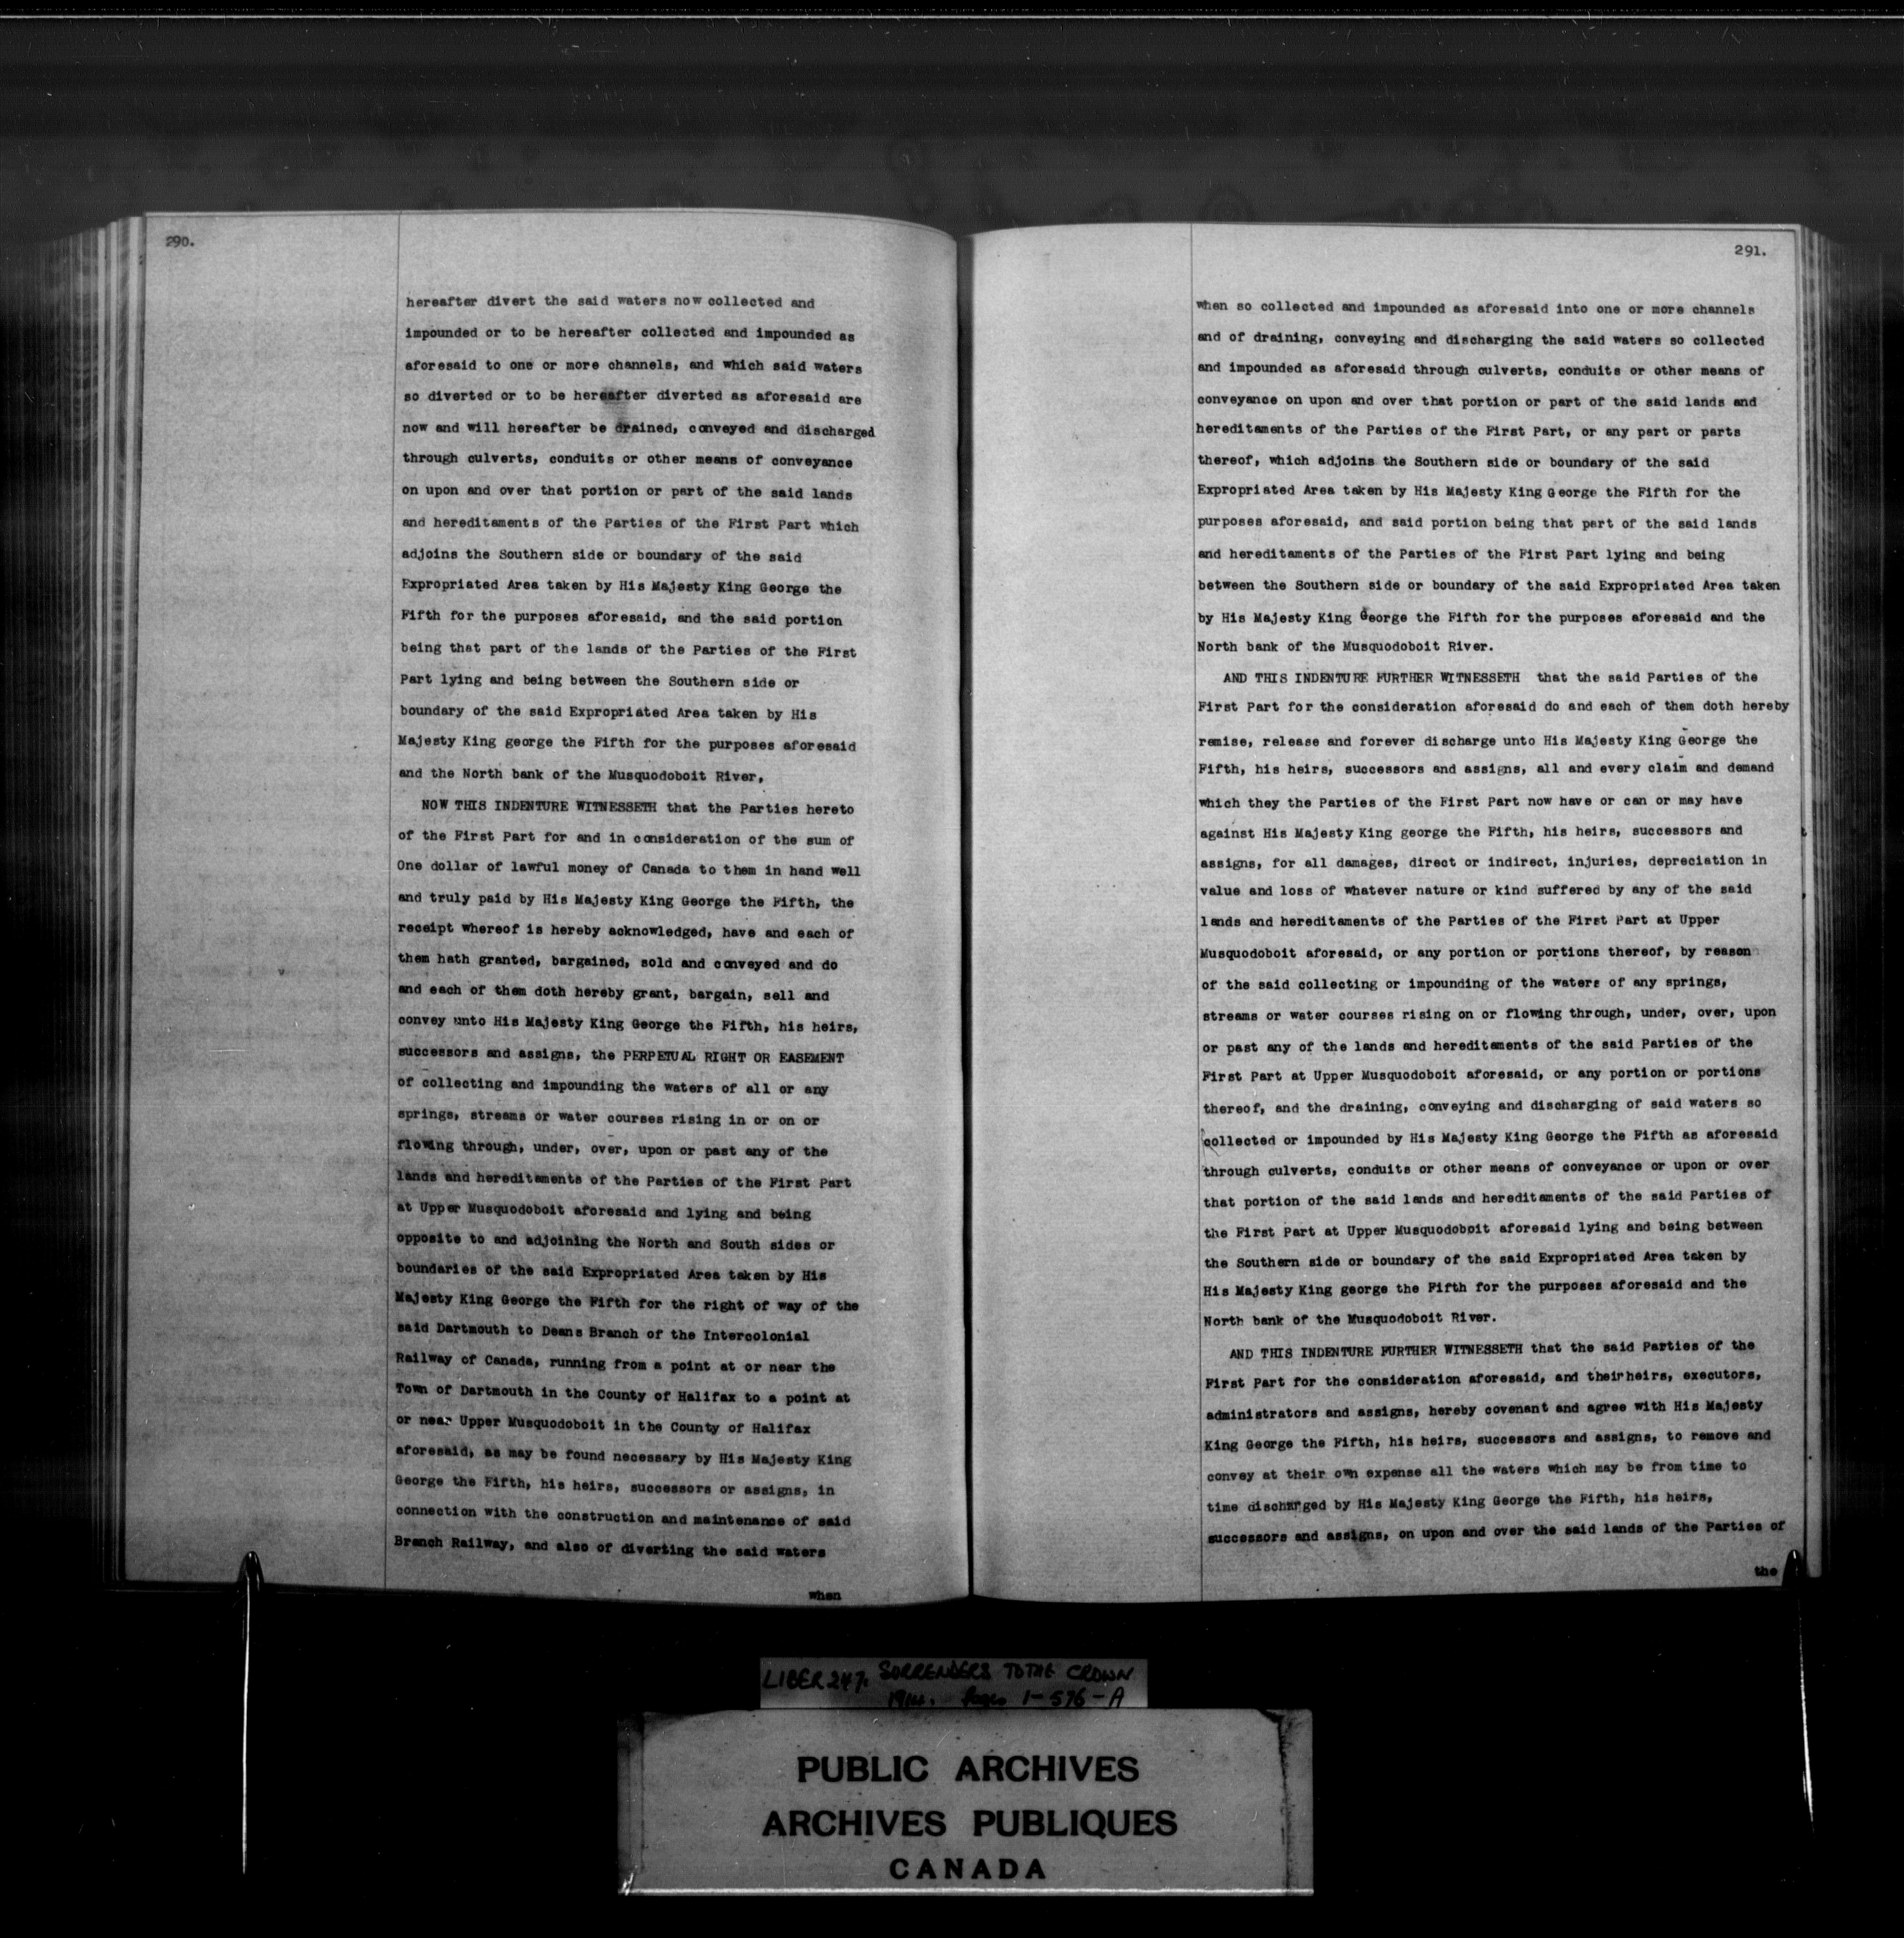 290.
hereafter divert the said waters now collected and
impounded or to be hereafter collected and impounded as
aforesaid to one or more channels, and which said waters
so diverted or to be hereafter diverted as aforesaid are
now and will hereafter be drained, conveyed and discharged
through culverts, conduits or other means of conveyance
on upon and over that portion or part of the said lands
and hereditaments of the Parties of the First Part which
adjoins the Southern side or boundary of the said
Expropriated Area taken by His Majesty King George the
Fifth for the purposes aforesaid, and the said portion
being that part of the lands of the Parties of the First
Part lying and being between the Southern side or
boundary of the said Expropriated Area taken by His
Majesty King george the Fifth for the purposes aforesaid
and the North bank of the Musquodoboit River,
NOW THIS INDENTURE WITNESSETH that the Parties hereto
of the First Part for and in consideration of the sum of
One dollar of lawful money of Canada to them in hand well
and truly paid by His Majesty King George the Fifth, the
receipt whereof is hereby acknowledged, have and each of
them hath granted, bargained, sold and conveyed and do
and each of them doth hereby grant, bargain, sell and
convey unto His Majesty King George the Fifth, his heirs,
successors and assigns, the PERPETUAL RIGHT OR EASEMENT
of collecting and impounding the waters of all or any
springs, streams or water courses rising in or on or
flowing through, under, over, upon or past any of the
lands and hereditaments of the Parties of the First Part
at Upper Musquodoboit aforesaid and lying and being
opposite to and adjoining the North and South sides or
boundaries of the said Expropriated Area taken by His
Majesty King George the Fifth for the right of way of the
said Dartmouth to Deans Branch of the Intercolonial
Railway of Canada, running from a point at or near the
Town of Dartmouth in the County of Halifax to a point at
or near Upper Musquodoboit in the County of Halifax
aforesaid, as may be found necessary by His Majesty King
George the Fifth, his heirs, successors or assigns, in
connection with the construction and maintenance of said
Branch Railway, and also of diverting the said waters
when
291.
when so collected and impounded as aforesaid into one or more channels
and of draining, conveying and discharging the said waters so collected
and impounded as aforesaid through culverts, conduits or other means of
conveyance on upon and over that portion or part of the said lands and
hereditaments of the Parties of the First Part, or any part or parts
thereof, which adjoins the Southern side or boundary of the said
Expropriated Area taken by His Majesty King George the Fifth for the
purposes aforesaid, and said portion being that part of the said lands
and hereditaments of the Parties of the First Part lying and being
between the Southern side or boundary of the said Expropriated Area taken
by His Majesty King George the Fifth for the purposes aforesaid and the
North bank of the Musquodoboit River.
AND THIS INDENTURE FURTHER WITNESSETH that the said Parties of the
First Part for the consideration aforesaid do and each of them doth hereby
remise, release and forever discharge unto His Majesty King George the
Fifth, his heirs, successors and assigns, all and every claim and demand
which they the Parties of the First Part now have or can or may have
against His Majesty King george the Fifth, his heirs, successors and
assigns, for all damages, direct or indirect, injuries, depreciation in
value and loss of whatever nature or kind suffered by any of the said
lands and hereditaments of the Parties of the First Part at Upper
Musquodoboit aforesaid, or any portion or portions thereof, by reason
of the said collecting or impounding of the waters of any springs,
streams or water courses rising on or flowing through, under, over, upon
or past any of the lands and hereditaments of the said Parties of the
First Part at Upper Musquodoboit aforesaid, or any portion or portions
thereof, and the draining, conveying and discharging of said waters so
collected or impounded by His Majesty King George the Fifth as aforesaid
through culverts, conduits or other means of conveyance or upon or over
that portion of the said lands and hereditaments of the said Parties of
the First Part at Upper Musquodoboit aforesaid lying and being between
the Southern side or boundary of the said Expropriated Area taken by
His Majesty King george the Fifth for the purposes aforesaid and the
North bank of the Musquodoboit River.
AND THIS INDENTURE FURTHER WITNESSETH that the said Parties of the
First Part for the consideration aforesaid, and their heirs, executors,
administrators and assigns, hereby covenant and agree with His Majesty
King George the Fifth, his heirs, successors and assigns, to remove and
convey at their own expense all the waters which may be from time to
time discharged by His Majesty King George the Fifth, his heirs,
successors and assigns, on upon and over the said lands of the Parties of
the
LIBER 247. SURRENDERS TO THE CROWN
1914. Pages 1-576-A
PUBLIC ARCHIVES
ARCHIVES PUBLIQUES
CANADA